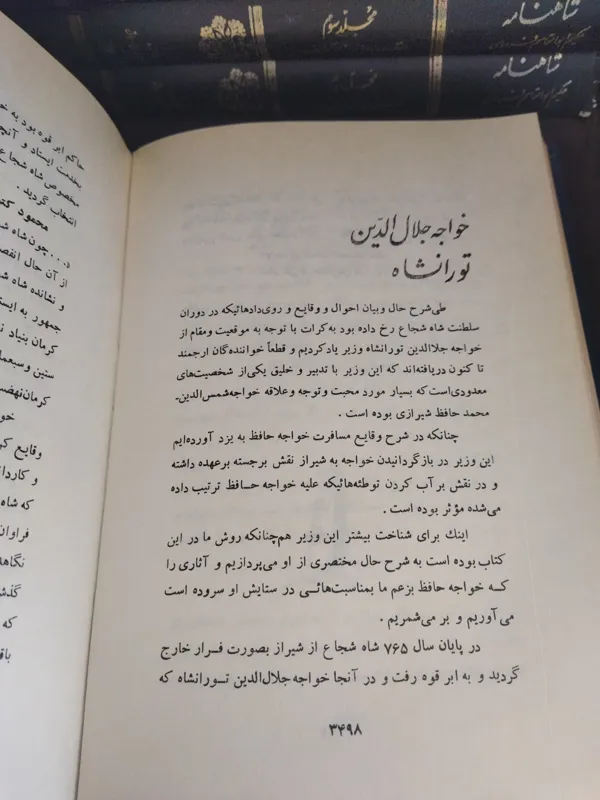 شاهنامه
مجلد سوم
شاهنامه
حاکم ابر قوه بود به خ
بخدمت ایستاد و آنچ
مخصوص شاه شجاع
انتخاب گردید .
محمود کت
د... چون شاه ش
از آن حال انقص
و نشانده شاه ش
جمهور به ایستا
کرمان بنیاد ن
ستین وسبعما
کرمان‌نهضت
خو
وقایع کر
و کاردا
که شاه
فراوان
نگاهد
گذش
که
باق
خواجه جلال الدین
تورانشاه
طی‌شرح حال وبیان احوال و وقایع و روی‌دادهائیکه در دوران
سلطنت شاه شجاع رخ داده بود به‌کرات با توجه به موقعیت ومقام از
خواجه جلاالدین تورانشاه وزیر یادکردیم و قطعاً خواننده‌گان ارجمند
تا کنون دریافته‌اند که این وزیر با تدبیر و خلیق یکی‌از شخصیت‌های
معدودی‌است‌که بسیار مورد محبت وتوجه وعلاقه خواجه‌شمس‌الدین‌ـ
محمد حافظ شیرازی بوده است .
چنانکه در شرح وقایع مسافرت خواجه حافظ به یزد آورده‌ایم
این وزیر در بازگردانیدن خواجه به شیراز نقش برجسته برعهده داشته
و در نقش بر آب کردن توطئه‌هائیکه علیه خواجه حسافظ ترتیب داده
می‌شده مؤثر بوده است .
اینك برای شناخت بیشتر این وزیر هم‌چنانکه روش ما در این
کتاب بوده است به شرح حال مختصری از او می‌پردازیم و آثاری را
کـه خواجه حافظ بزعم ما بمناسبت‌هائـی در ستایش او سروده است
می‌آوریم و بر می‌شمریم .
در پایان سال ۷۶۵ شاه شجاع از شیراز بصورت فـرار خارج
گردید و به ابر قوه رفت و در آنجا خواجه‌جلال‌الدین تـورانشاه که
۳۴۹۸